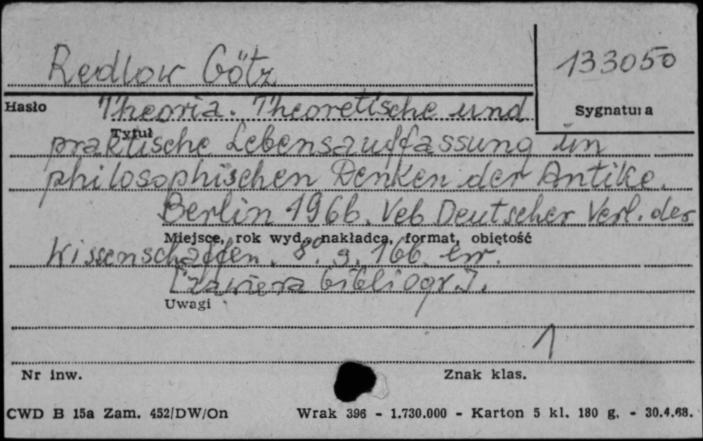 Redlow Götz
133050
Hasło
Sygnatura
Theoria. Theoretische und
Tytuł
praktische Lebensauffassung im
philosophischen Denken der Antike.
Berlin 1966. Veb Deutscher Verl. der
Miejsce, rok wyd., nakładca, format, objętość
Wissenschaften. 8°. s. 166
[zawiera bibliogr.].
Uwagi
1
Nr inw.
Znak klas.
CWD B 15a Zam. 452/DW/On
Wrak 396 - 1.730.000 - Karton 5 kl. 180 g. - 30.4.68.